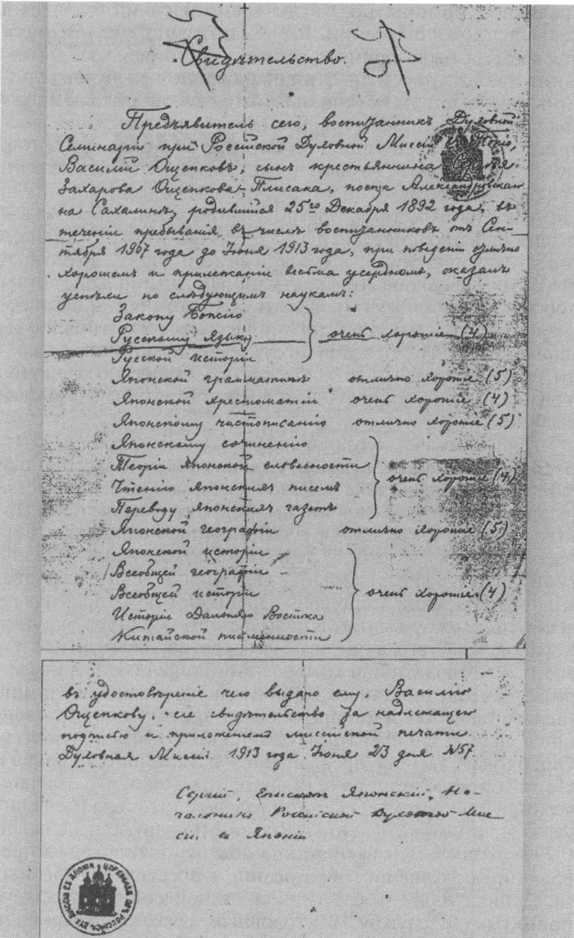 Свидѣтельство.
Предъявитель сего, воспитанникъ Духовной
Семинаріи при Россійской Духовной Миссіи въ Токіо,
Василій Ощепковъ, сынъ крестьянина
Захарова Ощепкова-Плисака, поста Александровскаго
на Сахалинѣ, родившійся 25го Декабря 1892 года, въ
теченіи пребыванія въ числѣ воспитанниковъ отъ Сен-
тября 1907 года до Іюня 1913 года, при поведеніи отлично
хорошемъ и прилежаніи весьма усердномъ, оказалъ
успѣхи по слѣдующимъ наукамъ:
Закону Божію
Русскому языку очень хорошіе (4)
Русской исторіи
Японской грамматикѣ отлично хорошіе (5)
Японской христоматіи очень хорошіе (4)
Японскому чистописанію отлично хорошіе (5)
Японскому сочиненію
Теоріи Японской словесности
Чтенію Японскихъ писемъ очень хорошіе (4)
Переводу Японскихъ газетъ
Японской географіи отлично хорошіе (5)
Японской исторіи
Всеобщей географіи
Всеобщей исторіи очень хорошіе (4)
Исторіи Дальняго Востока
Китайской письменности
въ удостовѣреніе чего выдано ему, Василію
Ощепкову, сіе свидѣтельство за надлежащею
подписью и приложеніемъ миссійской печати.
Духовная Миссія. 1913 года Іюня 23 дня №57.
Сергій, Епископъ Японскій, На-
чальникъ Россійской Духовной Мис-
сіи въ Японіи